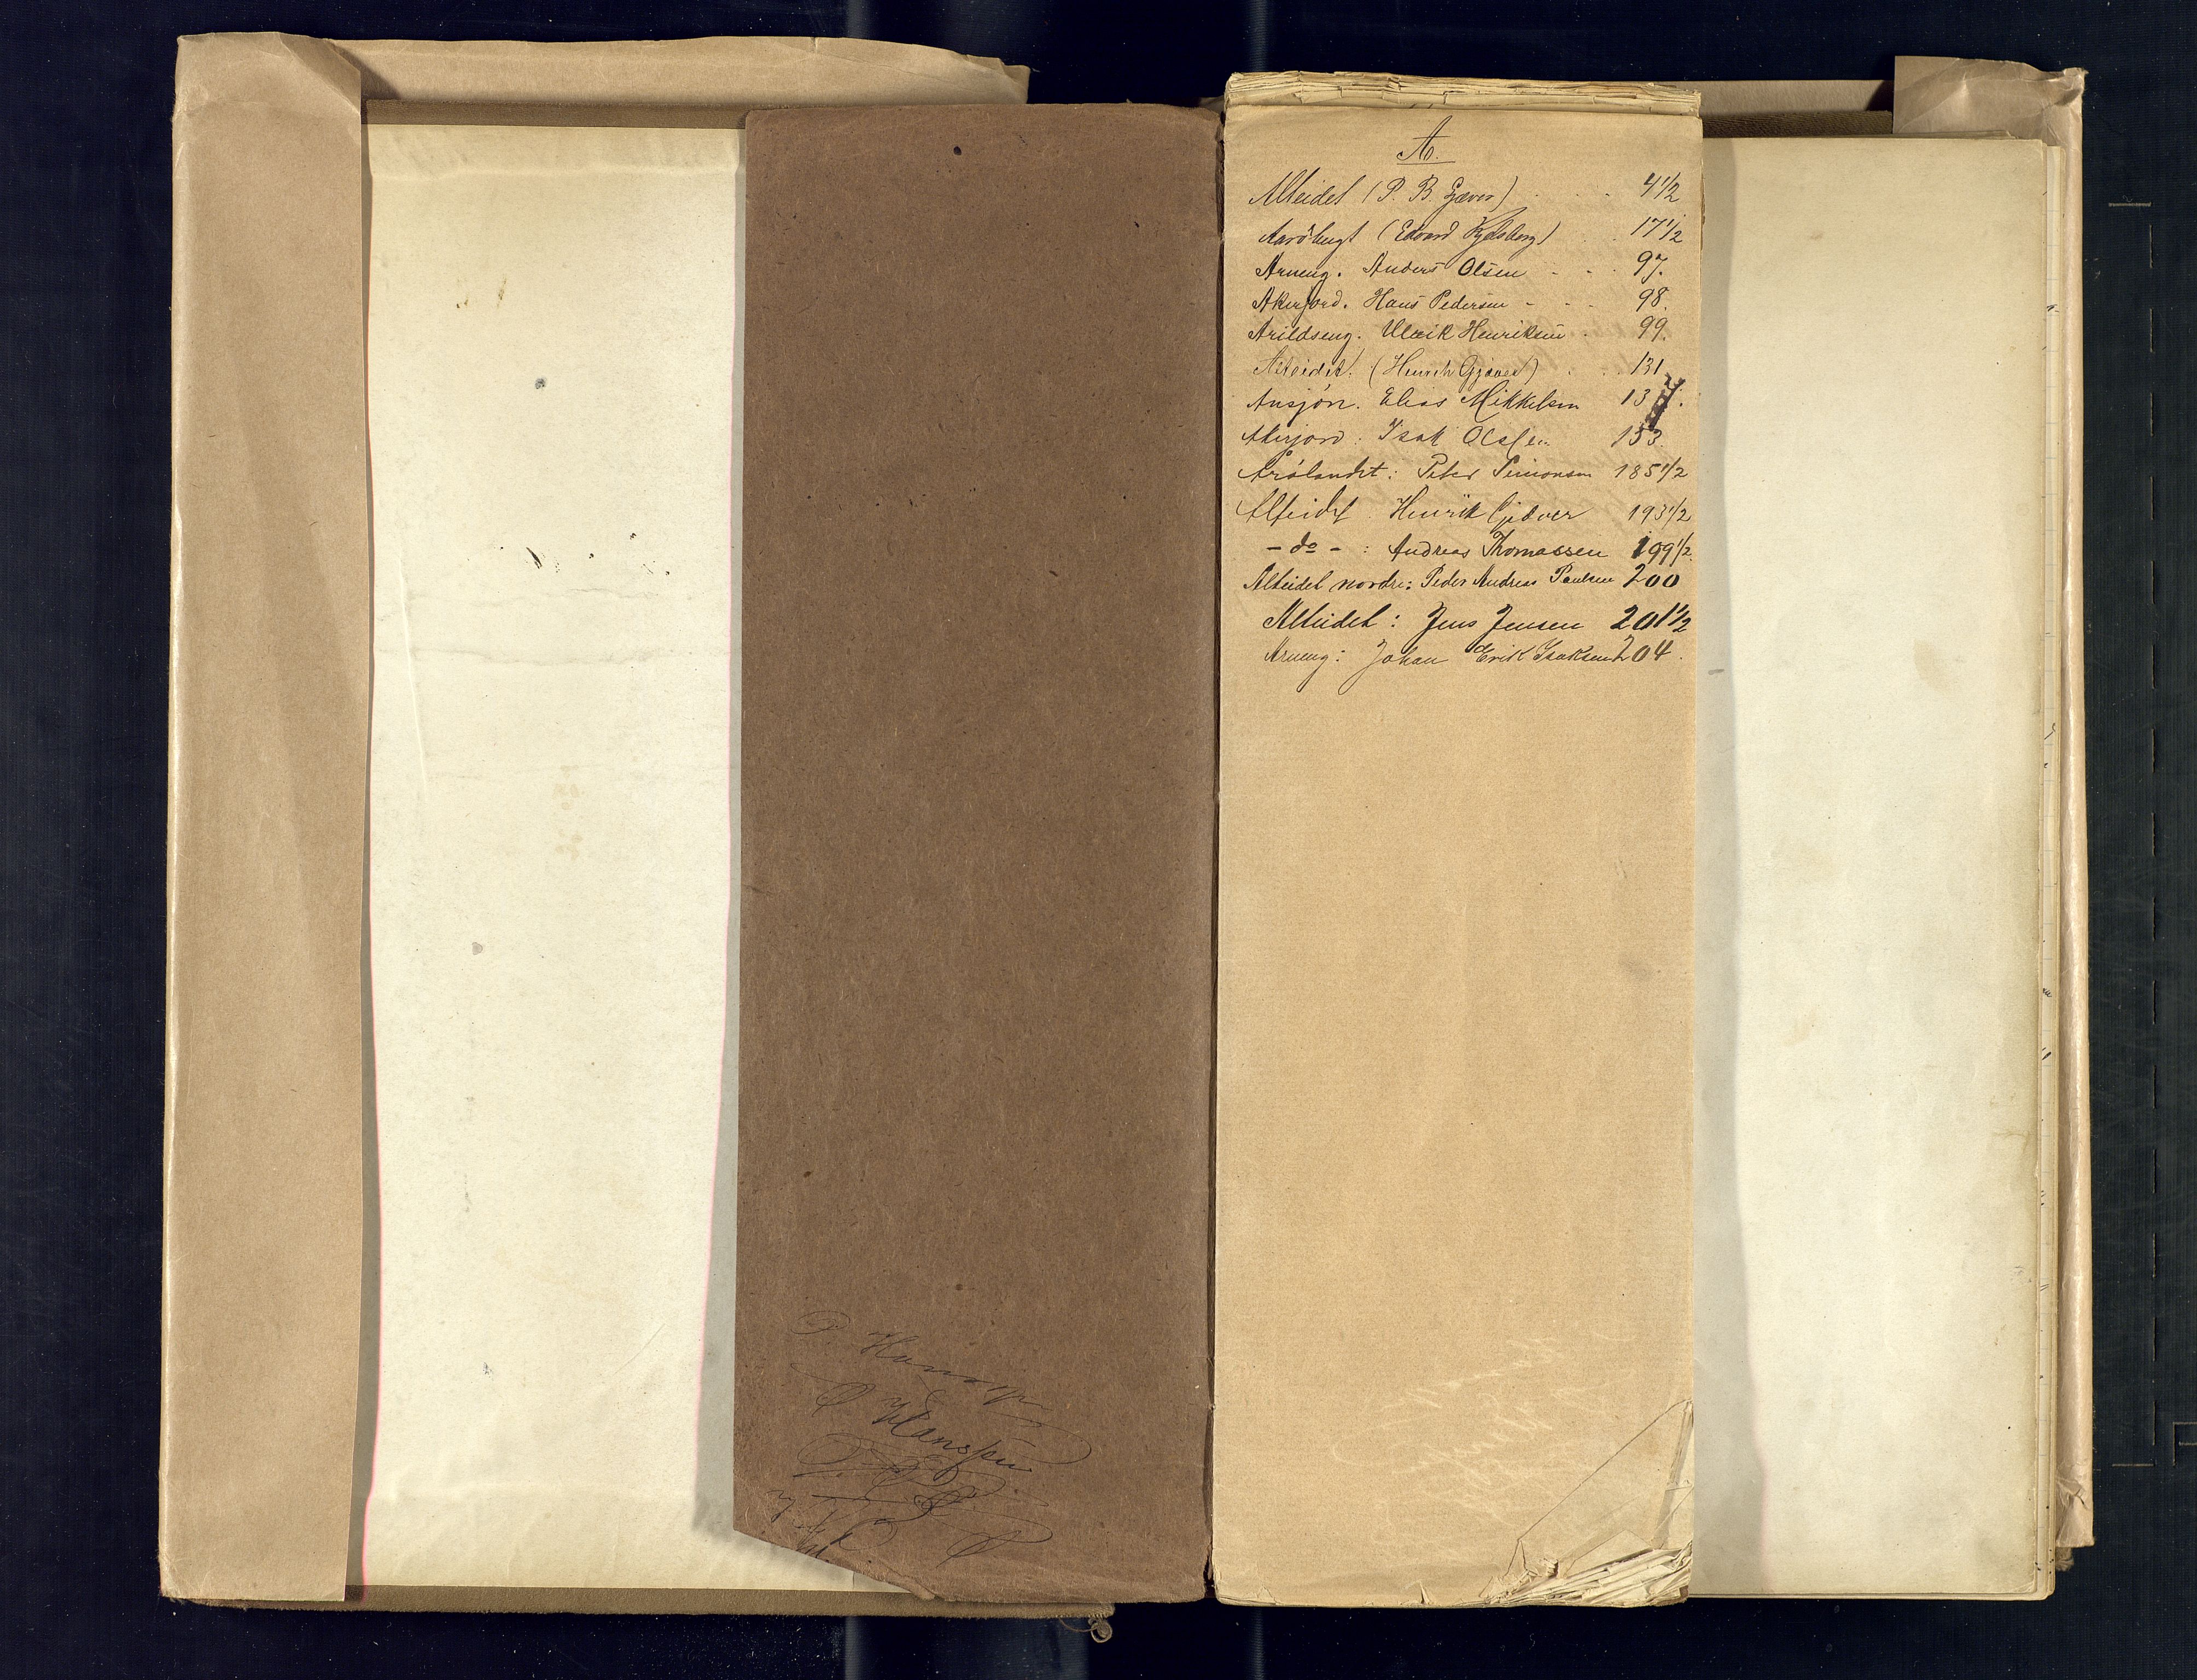 P. Hansen
P Hanssen
A.
Alteidet (P. B. Gjæver) . . . 4 1/2
Aaröbugt (Edvard Kjelsberg) . . 17 1/2
Arneng. Anders Olsen - - . 97.
Akerjord. Hans Pedersen - - - 98.
Arildseng. Ulrik Henriksen . 99.
Alteidet. (Henrik Gjæver) . . . 131
Ansjön. Elias Mikkelsen 137.
Akerjord. Isak Olsen 153.
Arölandet: Peter Simonsen 185 1/2
Alteidet Henrik Gjæver 193 1/2
- do - : Andreas Thomassen 199 1/2
Alteidet nordre: Peder Andreas Paulsen 200
Alteidet: Jens Jensen 201 1/2
Arneng: Johan Erik Isaksen 204.